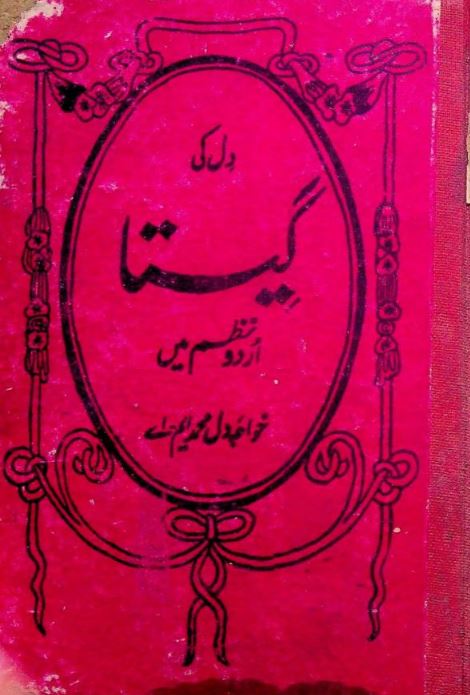 دل کی
گیتا
اُردو نظم میں
خواجہ دل محمد ایم۔اے